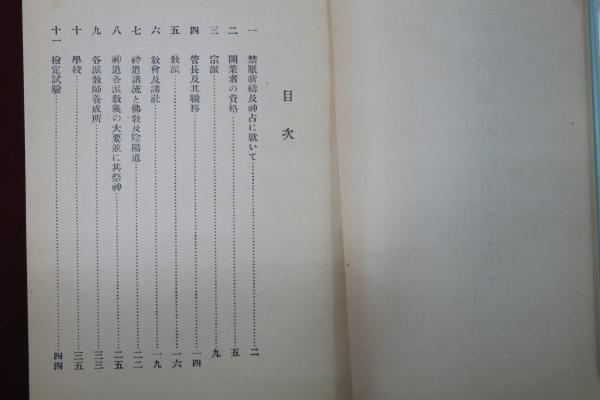 目次
一 禁厭祈禱及神占に就いて……二
二 開業者の資格……五
三 宗派……九
四 管長及其職務……一四
五 敎派……一六
六 敎會及講社……一九
七 神道諸流と佛敎及陰陽道……二二
八 神道各派敎義の大要並に其祭神……二五
九 各派敎師養成所……三三
十 學校……三五
十一 檢定試驗……四四